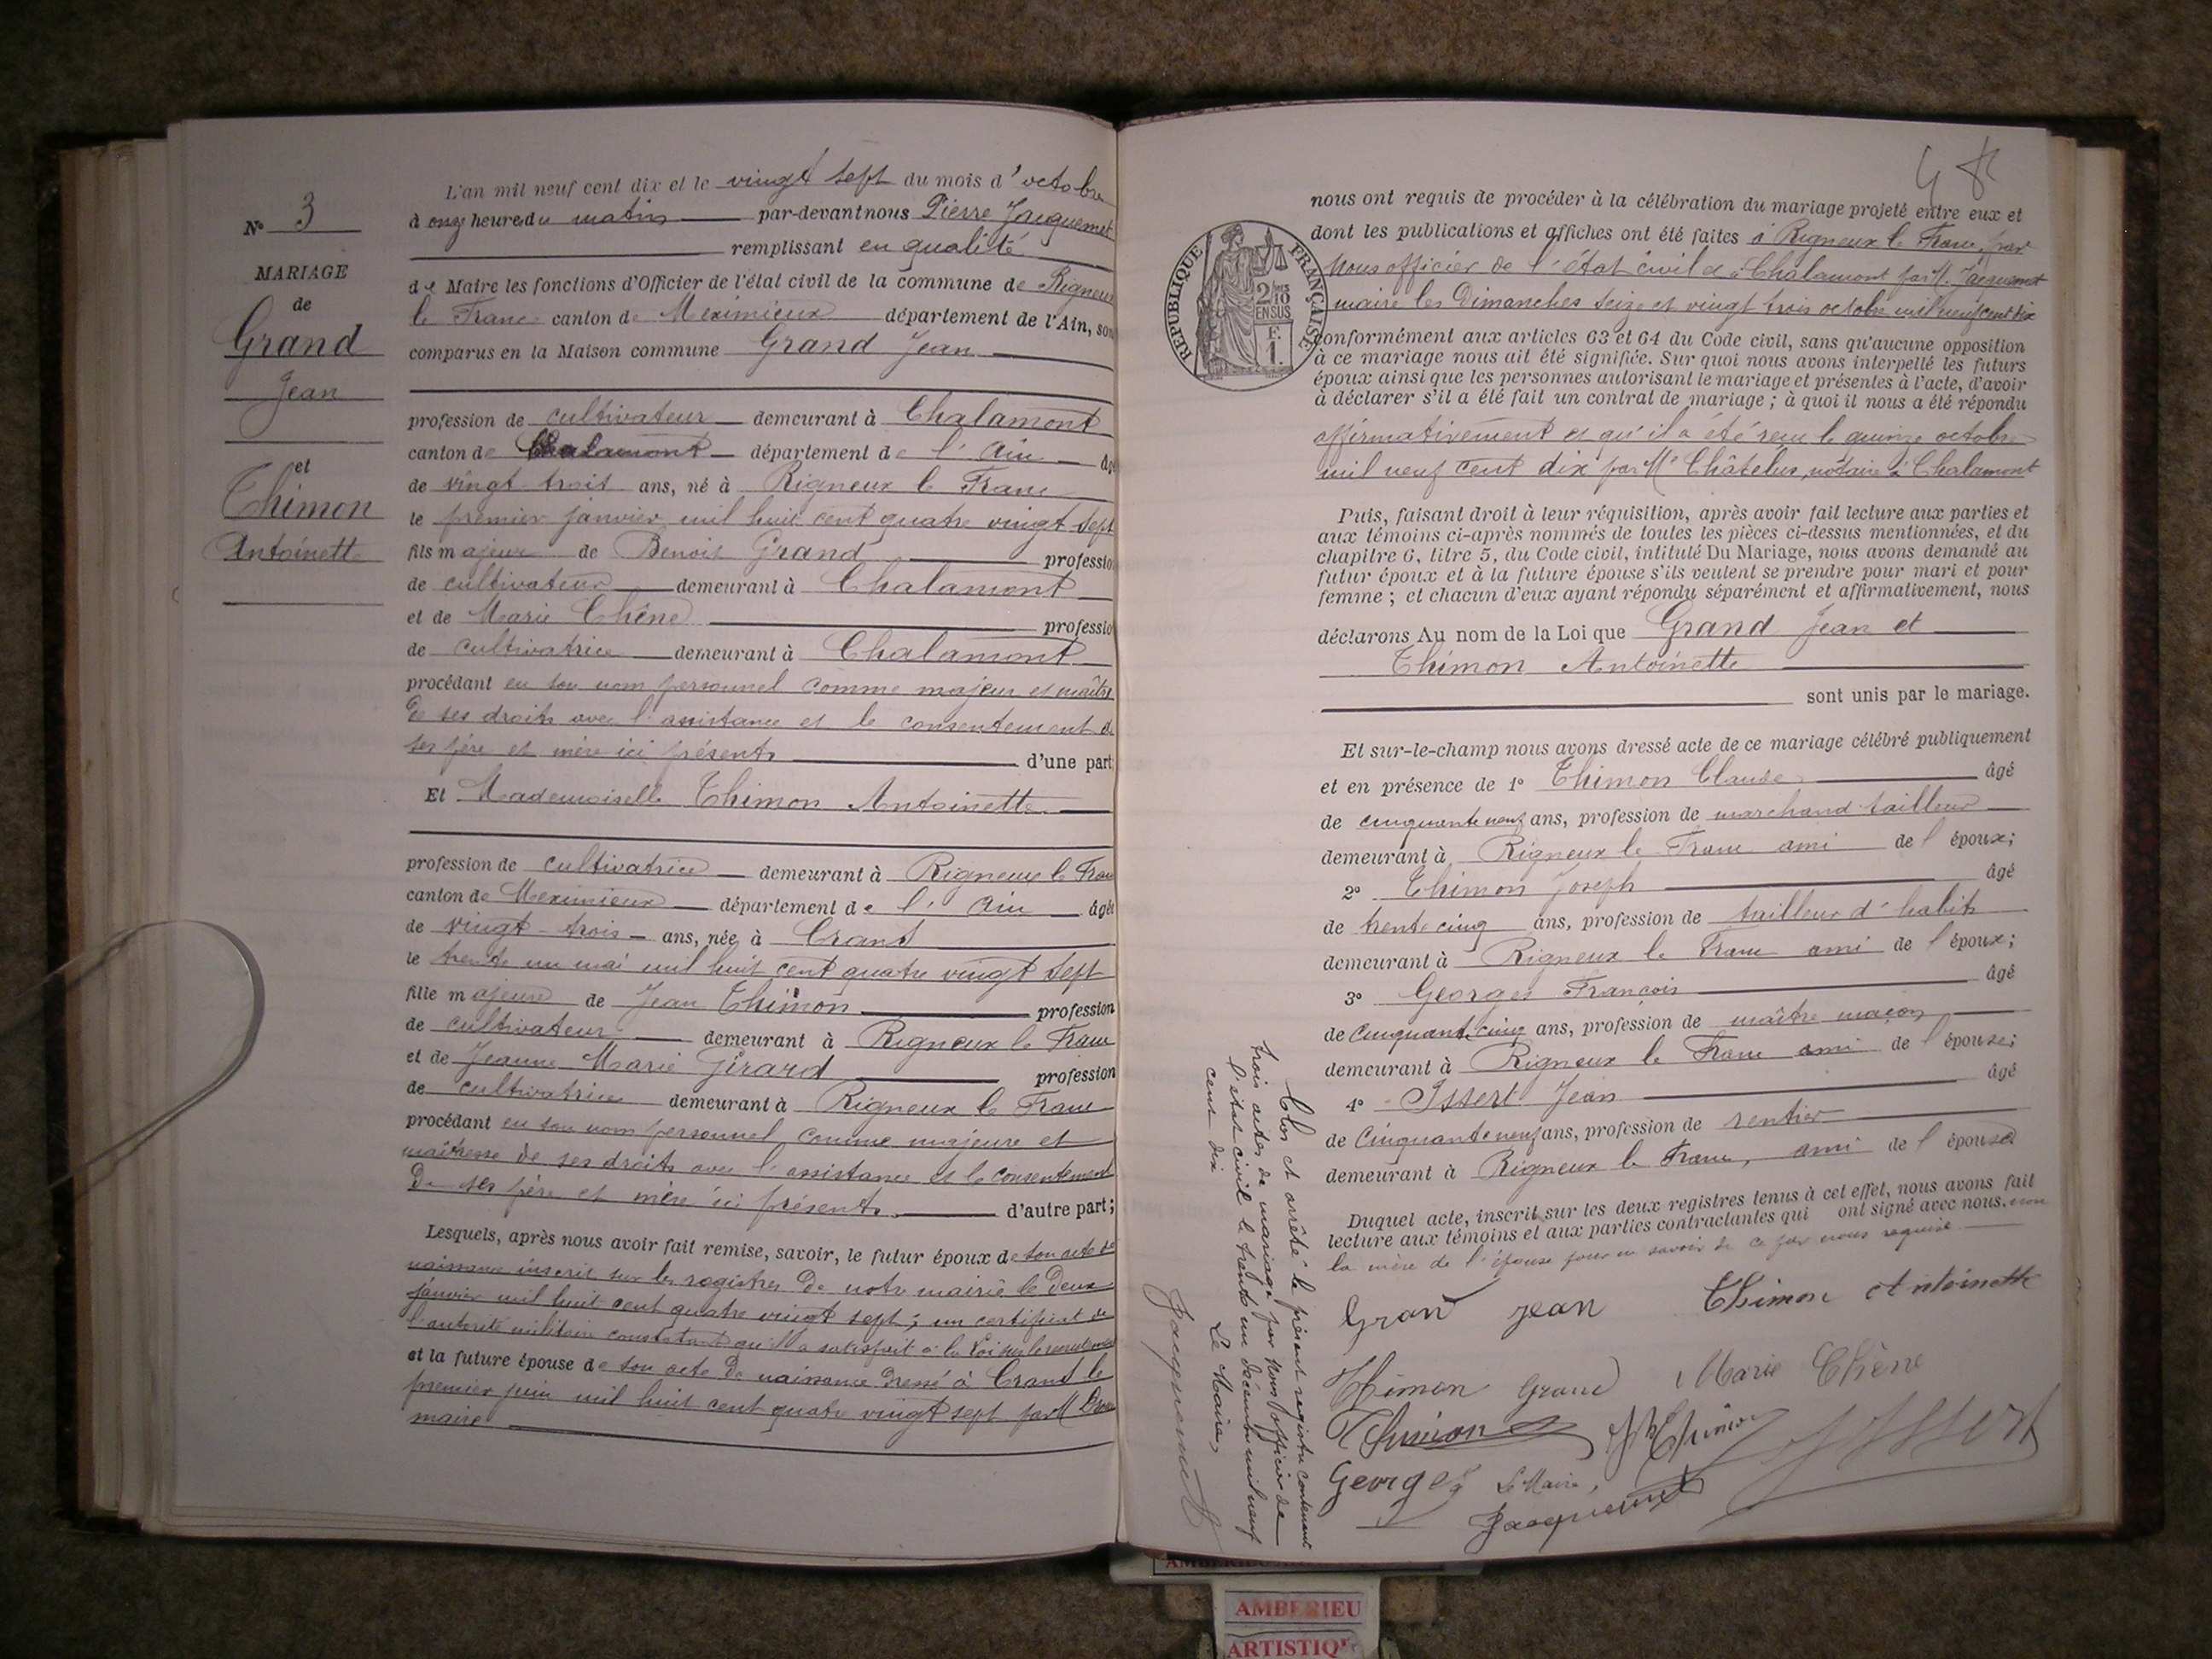 L'an mil neuf cent dix et le vingt sept du mois d'octobre
à onze heures du matin par-devant nous Pierre Jacquemet
remplissant en qualité
de Maire les fonctions d'Officier de l'état civil de la commune de Rigneux
le Franc canton de Meximieux département de l'Ain, sont
comparus en la Maison commune Grand Jean
profession de cultivateur demeurant à Chalamont
canton de Chalamont département de l'Ain âgé
de vingt-trois ans, né à Rigneux le Franc
le premier janvier mil huit cent quatre vingt sept
fils majeur de Benoit Grand profession
de cultivateur demeurant à Chalamont
et de Marie Chêne profession
de cultivatrice demeurant à Chalamont
procédant en son nom personnel comme majeur et maître
de ses droits avec l'assistance et le consentement de
ses père et mère ici présents d'une part
Et Mademoiselle Thimon Antoinette
profession de cultivatrice demeurant à Rigneux le Franc
canton de Meximieux département de l'Ain âgée
de vingt-trois ans, née à Crans
le trente un mai mil huit cent quatre vingt sept
fille majeure de Jean Thimon profession
de cultivateur demeurant à Rigneux le Franc
et de Jeanne Marie Girard profession
de cultivatrice demeurant à Rigneux le Franc
procédant en son nom personnel comme majeure et
maîtresse de ses droits avec l'assistance et le consentement
de ses père et mère ici présents d'autre part;
Lesquels, après nous avoir fait remise, savoir, le futur époux de son acte de
naissance inscrit sur les registres de notre mairie le deux
janvier mil huit cent quatre vingt sept; un certificat de
l'autorité militaire constatant qu'il a satisfait à la Loi sur le recrutement
et la future épouse de son acte de naissance dressé à Crans le
premier juin mil huit cent quatre vingt sept par M
maire
N° 3
MARIAGE
de
Grand
Jean
et
Thimon
Antoinette
nous ont requis de procéder à la célébration du mariage projeté entre eux et
dont les publications et affiches ont été faites à Rigneux le Franc, par
Nous officier de l'état civil et à Chalamont par M. Jacquemet
maire les Dimanches seize et vingt trois octobre mil neuf cent dix
conformément aux articles 63 et 64 du Code civil, sans qu'aucune opposition
à ce mariage nous ait été signifiée. Sur quoi nous avons interpellé les futurs
époux ainsi que les personnes autorisant le mariage et présentes à l'acte, d'avoir
à déclarer s'il a été fait un contrat de mariage; à quoi il nous a été répondu
affirmativement et qu'il a été reçu le quinze octobre
mil neuf cent dix par Me Châtelus, notaire à Chalamont
Puis, faisant droit à leur réquisition, après avoir fait lecture aux parties et
aux témoins ci-après nommés de toutes les pièces ci-dessus mentionnées, et du
chapitre 6, titre 5, du Code civil, intitulé Du Mariage, nous avons demandé au
futur époux et à la future épouse s'ils veulent se prendre pour mari et pour
femme; et chacun d'eux ayant répondu séparément et affirmativement, nous
déclarons Au nom de la Loi que Grand Jean et
Thimon Antoinette
sont unis par le mariage.
Et sur-le-champ nous avons dressé acte de ce mariage célébré publiquement
et en présence de 1° Thimon Claude âgé
de cinquante neuf ans, profession de marchand tailleur
demeurant à Rigneux le Franc ami de l'époux;
2° Thimon Joseph âgé
de trente cinq ans, profession de tailleur d'habits
demeurant à Rigneux le Franc ami de l'époux;
3° Georges François âgé
de cinquante cinq ans, profession de maître maçon
demeurant à Rigneux le Franc ami de l'épouse;
4° Issert Jean âgé
de cinquante neuf ans, profession de rentier
demeurant à Rigneux le Franc, ami de l'épouse
Duquel acte, inscrit sur les deux registres tenus à cet effet, nous avons fait
lecture aux témoins et aux parties contractantes qui ont signé avec nous, non
la mère de l'épouse pour ne savoir de ce par nous requise
Grand jean Thimon Antoinette
Thimon Grand Marie Chêne
Thimon Jh Thimon JIssert
Georges Le Maire,
Jacquemet
Clos et arrêté le présent registre contenant
trois actes de mariage par Nous officier de
l'état civil le trente un décembre mil neuf
cent dix Le Maire,
Jacquemet
RÉPUBLIQUE FRANÇAISE
2/10
EN SUS
F.
1.
AMBERIEU
ARTISTIQU